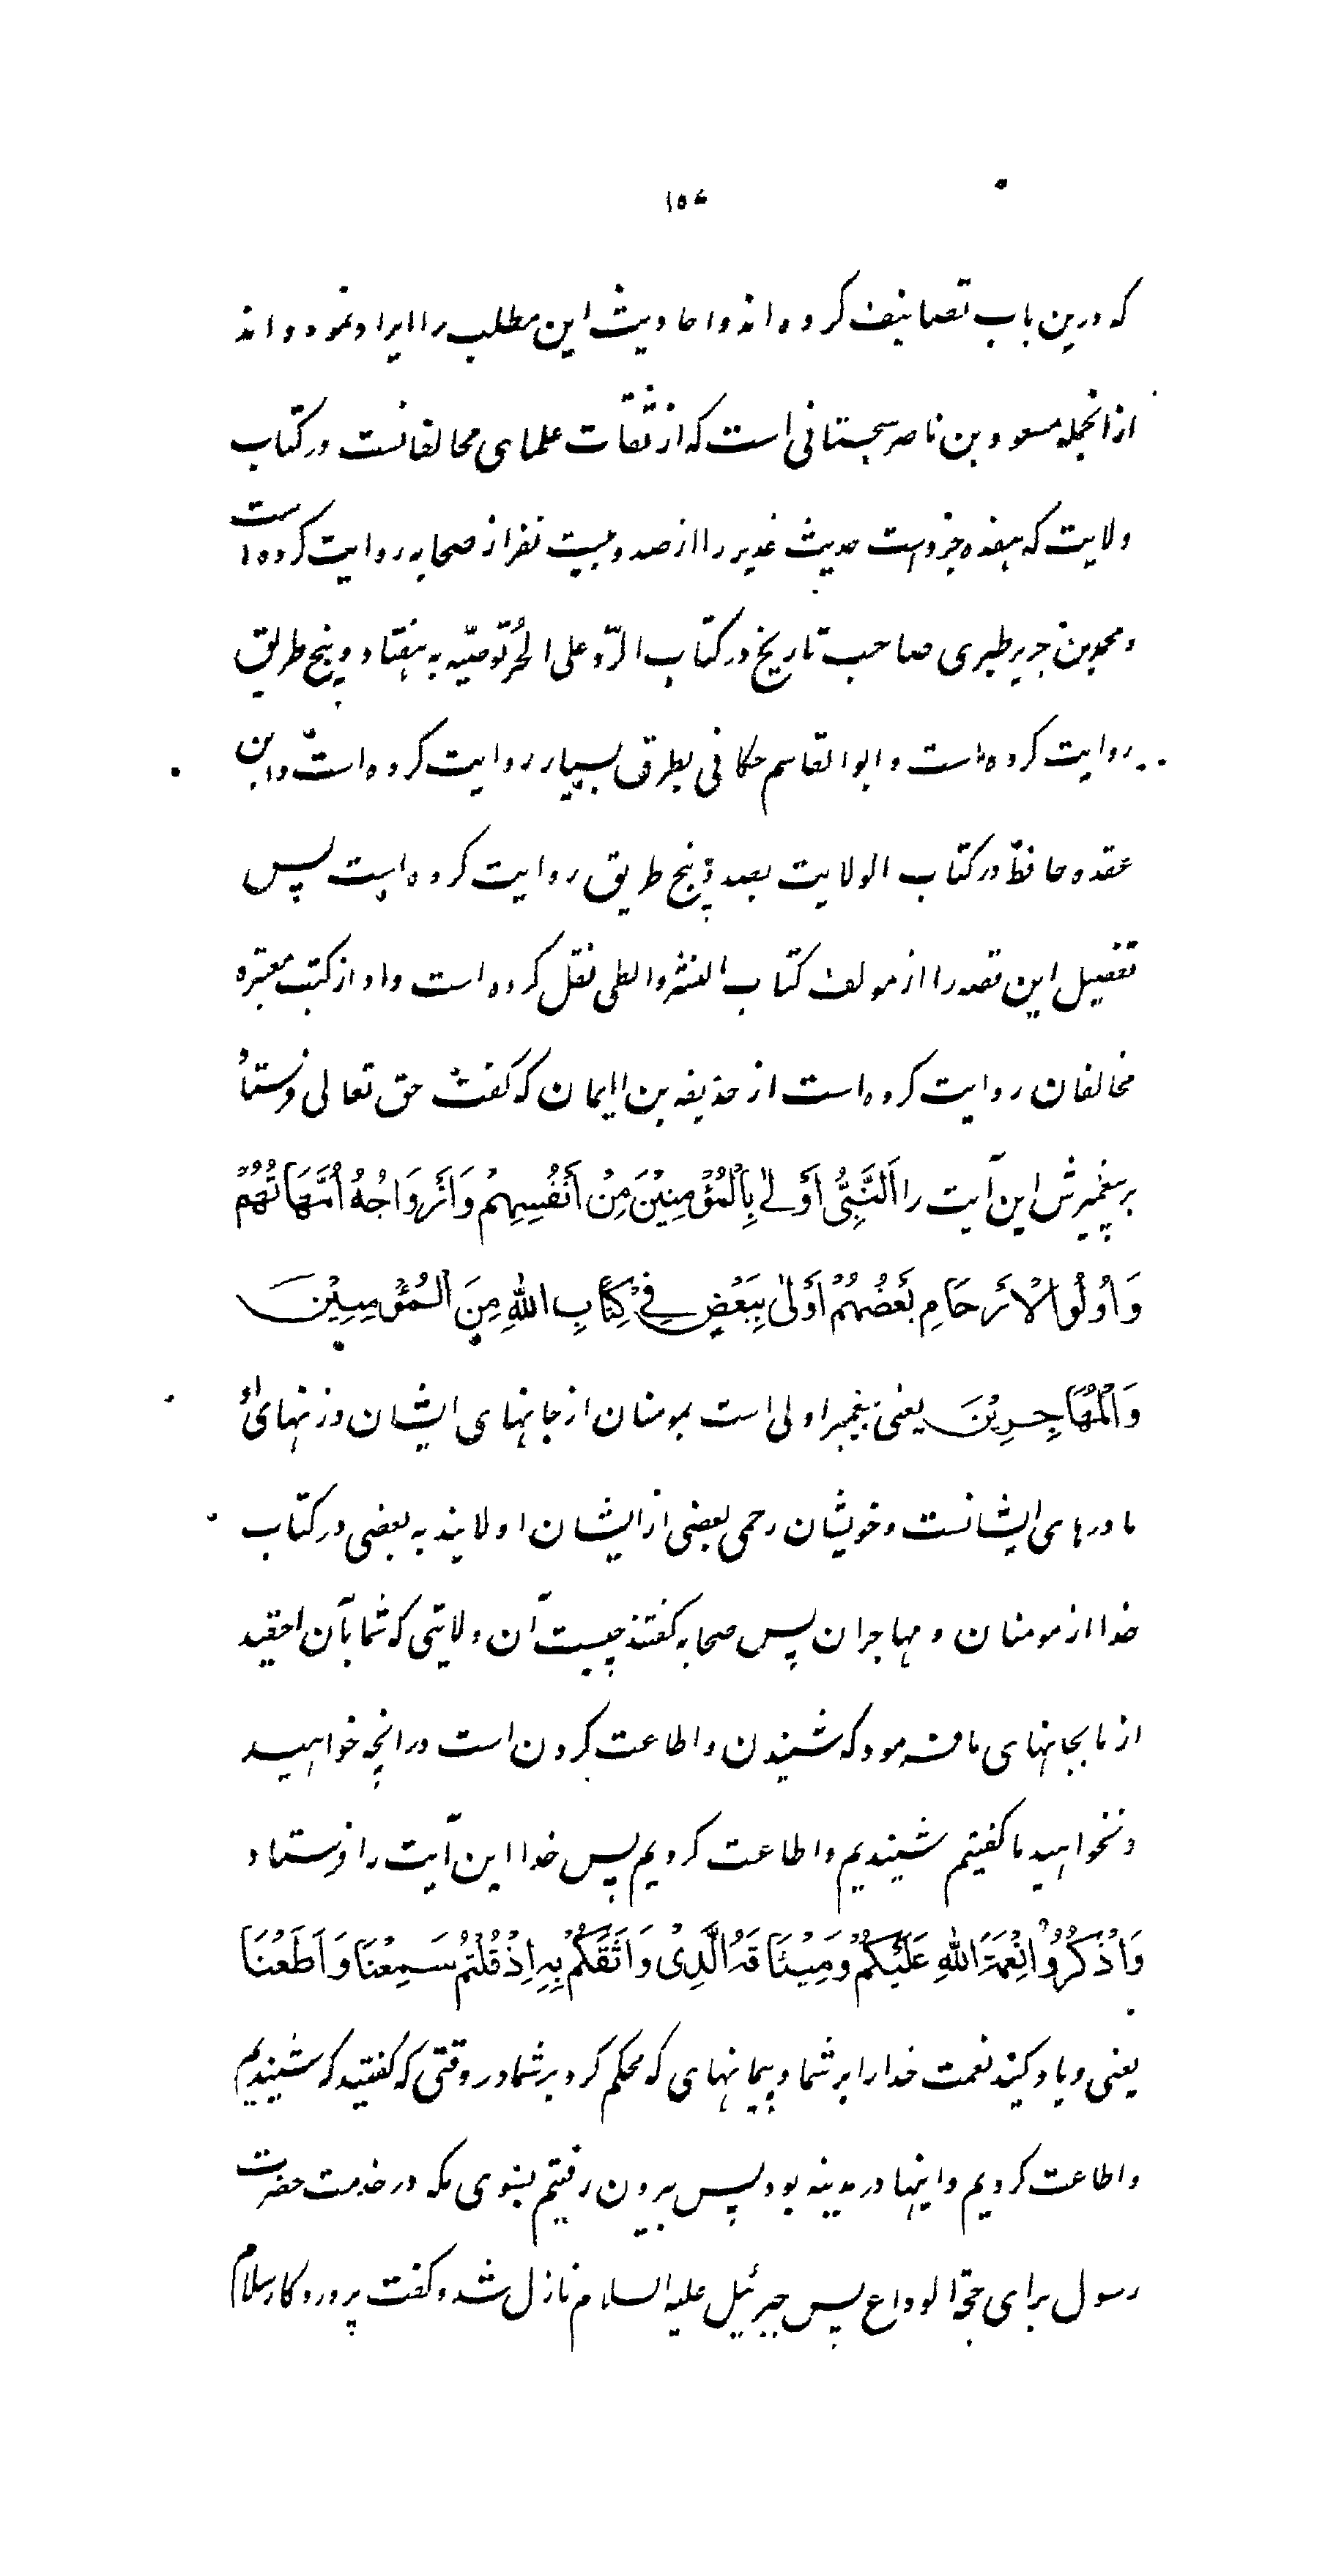 ۱۵۶
که درین باب تصانیف کرده اند و احادیث این مطلب را ایراد نموده اند
از انجمله مسعود بن ناصر سجستانی است که از ثقات علمای مخالفانست در کتاب
ولایت که هفده جزواست حدیث غدیر را از صد و بیست نفر از صحابه روایت کرده است
و محمد بن جریر طبری صاحب تاریخ در کتاب الرد علی الحُرقوصیّه به هفتاد و پنج طریق
روایت کرده است و ابو القاسم حکانی بطرق بسیار روایت کرده است و ابن
عقده حافظ در کتاب الولایت بصد و پنج طریق روایت کرده است پس
تفصیل این قصه را از مولف کتاب النشر والطی نقل کرده است و او از کتب معتبره
مخالفان روایت کرده است از حذیفه بن الیمان که گفت حق تعالی فرستاد
بر پیغمبرش این آیت را اَلنَّبِیُّ اَوْلٰی بِالْمُؤْمِنِیْنَ مِنْ اَنْفُسِهِمْ وَاَزْوَاجُهُ اُمَّهَاتُهُمْ
وَاُولُوا الْاَرْحَامِ بَعْضُهُمْ اَوْلٰی بِبَعْضٍ فِیْ کِتَابِ اللهِ مِنَ الْمُؤْمِنِیْنَ
وَالْمُهَاجِرِیْنَ یعنی پیغمبر اولی است بمومنان از جانهای ایشان و زنهای او
مادرهای ایشانست و خویشان رحمی بعضی از ایشان اولایند به بعضی در کتاب
خدا از مومنان و مهاجران پس صحابه گفتند چیست آن ولایتی که شما بآن احقید
از ما بجانهای ما فرمود که شنیدن و اطاعت کردن است در انچه خواهید
و نخواهید ما گفتیم شنیدیم و اطاعت کردیم پس خدا این آیت را فرستاد
وَاذْکُرُوْا نِعْمَةَ اللهِ عَلَیْکُمْ وَمِیْثَاقَهُ الَّذِیْ وَاثَقَکُمْ بِهِ اِذْ قُلْتُمْ سَمِعْنَا وَاَطَعْنَا
یعنی و یاد کنید نعمت خدا را بر شما و پیمانهای که محکم کرد بر شما در وقتی که گفتید که شنیدیم
و اطاعت کردیم و اینها در مدینه بود پس بیرون رفتیم بسوی مکه در خدمت حضرت
رسول برای حجة الوداع پس جبرئیل علیه السلام نازل شد و گفت پروردگار سلام